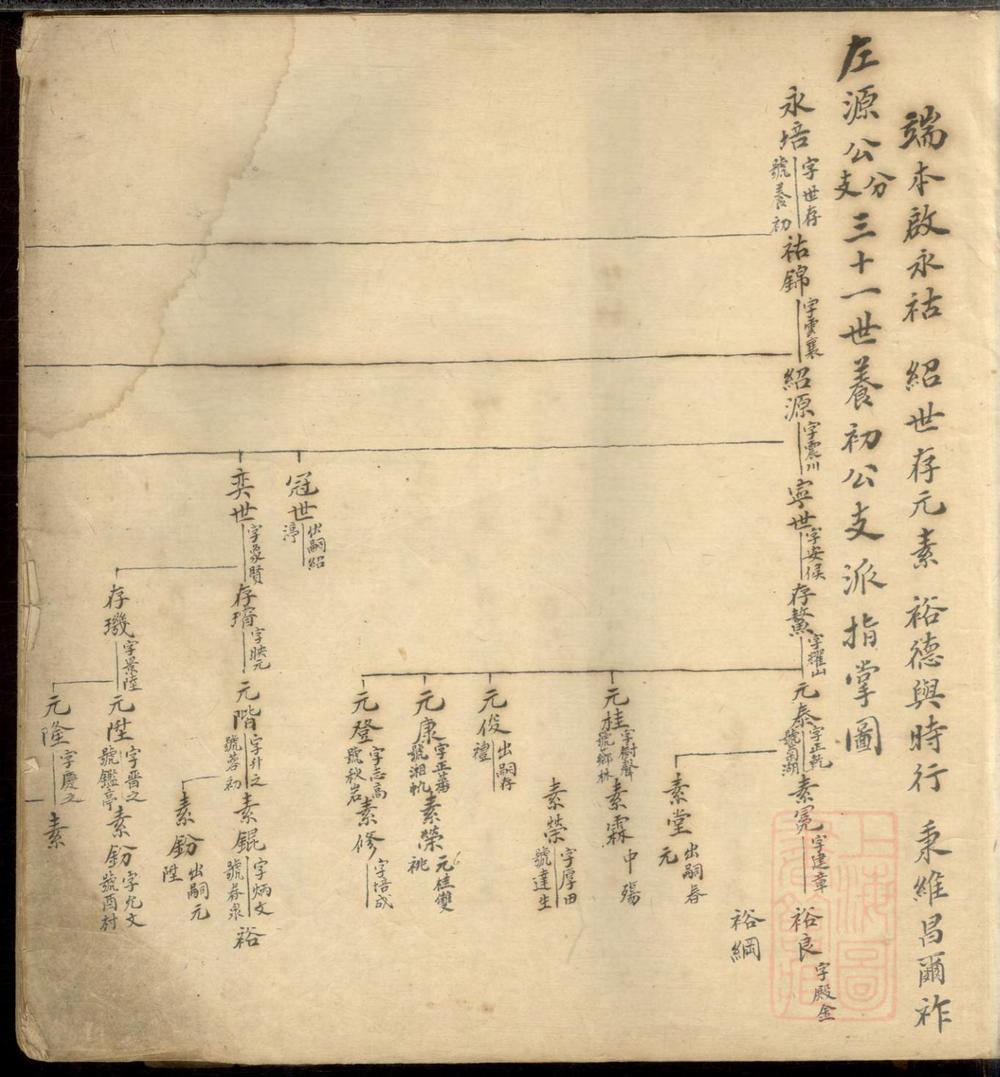 端本啟永祜 紹世存元素 裕德與時行 秉維昌爾祚
左源公分支三十一世養初公支派指掌圖
永培 字世存 號養初
祜錦 字雲襄
紹源 字震川
寧世 字安侯
存鰲 字耀山
元泰 字正乾 號南湖
素冕 字建章
裕良 字殿金
裕綱
素堂 出嗣春元
元桂 字尉聲 號鄉林
素霖 中殤
素榮 字厚田 號達生
元俊 出嗣存禮
元康 字正蕃 號湘帆
素榮 元桂雙祧
元登 字志高 號秋岩
素修 字培成
冠世 出嗣紹渟
奕世 字象賢
存瑃 字映元
元階 字升之 號蓉初
素錕 字炳文 號春泉
裕
素鈖 出嗣元陞
存璣 字景陸
元陞 字晉之 號鑑亭
素鈖 字允文 號酉村
元隆 字慶之
素
上海圖